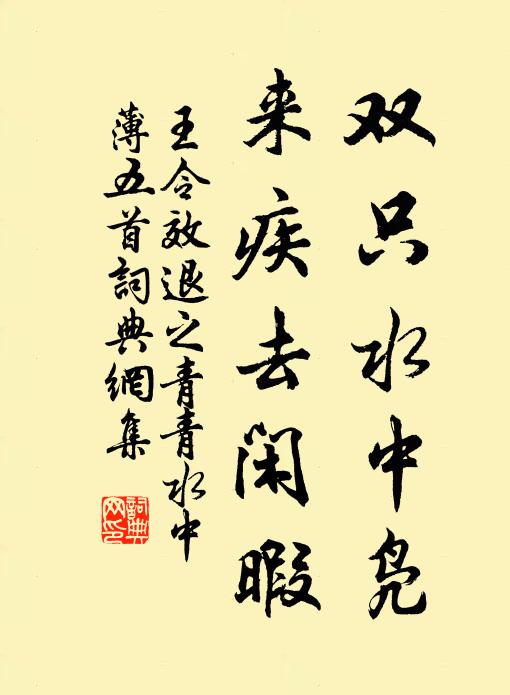 双只水中凫
来疾去闲暇
王令效退之青青水中
薄五首詞典網集
詞典网印